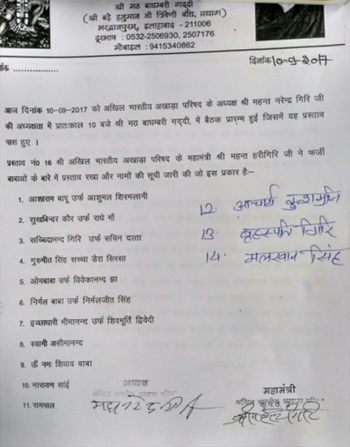 श्री मठ बाघम्बरी गद्दी
(श्री बड़े हनुमान जी त्रिवेणी बाँध, प्रयाग)
भरद्वाजपुरम्, इलाहाबाद - 211006
दूरभाष : 0532-2506930, 2507176
मोबाईल : 9415340862
दिनांक 10-9-2017
आज दिनांक 10-09-2017 को अखिल भारतीय अखाड़ा परिषद के अध्यक्ष श्री महन्त नरेन्द्र गिरि जी
की अध्यक्षता में प्रातःकाल 10 बजे श्री मठ बाघम्बरी गद्दी, में बैठक प्रारम्भ हुई जिसमें यह प्रस्ताव
पास हुए ।
प्रस्ताव नं0 16 श्री अखिल भारतीय अखाड़ा परिषद के महामंत्री श्री महन्त हरीगिरि जी ने फर्जी
बाबाओं के बारे में प्रस्ताव रखा और नामों की सूची जारी की जो इस प्रकार है:-
1. आशाराम बापू उर्फ आशुमल शिरमलानी
2. सुखबिन्दर कौर उर्फ राधे माँ
3. सच्चिदानन्द गिरि उर्फ सचिन दत्ता
4. गुरूमीत सिंह सच्चा डेरा सिरसा
5. ओमबाबा उर्फ विवेकानन्द झा
6. निर्मल बाबा उर्फ निर्मलजीत सिंह
7. इच्छाधारी भीमानन्द उर्फ शिवमूर्ति द्विवेदी
8. स्वामी असीमानन्द
9. ऊँ नमः शिवाय बाबा
10. नारायण साईं
11. रामपाल
12. आचार्य कुशमुनि
13. बृहस्पति गिरि
14. मलखान सिंह
अध्यक्ष
महामंत्री